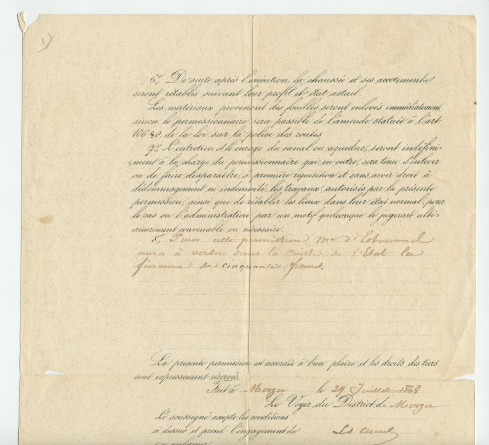 6º De suite après l'exécution, la chaussée et ses accotements
seront rétablis suivant leur profil et état actuel.
Les matériaux provenant des fouilles seront enlevés immédiatement,
sinon le permissionnaire sera passible de l'amende statuée à l'art.
de la loi sur la police des routes.
7º L'entretien et le curage du canal ou aqueduc, seront indéfini-
ment à la charge du permissionnaire qui, en outre, sera tenu d'enlever
ou de faire disparaître, à première réquisition et sans avoir droit à
dédommagement ou indemnité, les travaux autorisés par la présente
permission, ainsi que de rétablir les lieux dans leur état normal, pour
le cas où l'administration par un motif quelconque le jugerait ulté-
rieurement convenable ou nécessaire.
8. Pour cette permission Mr. d'
aura à verser dans la caisse de l'Etat la
finance de cinquante francs.
La présente permission est accordée à bien plaire et les droits des tiers
sont expressément réservés.
Fait à Morges le 29 Juillet 1868
Le Voyer du District de Morges
Le soussigné accepte les conditions
ci dessus et prend l'engagement de